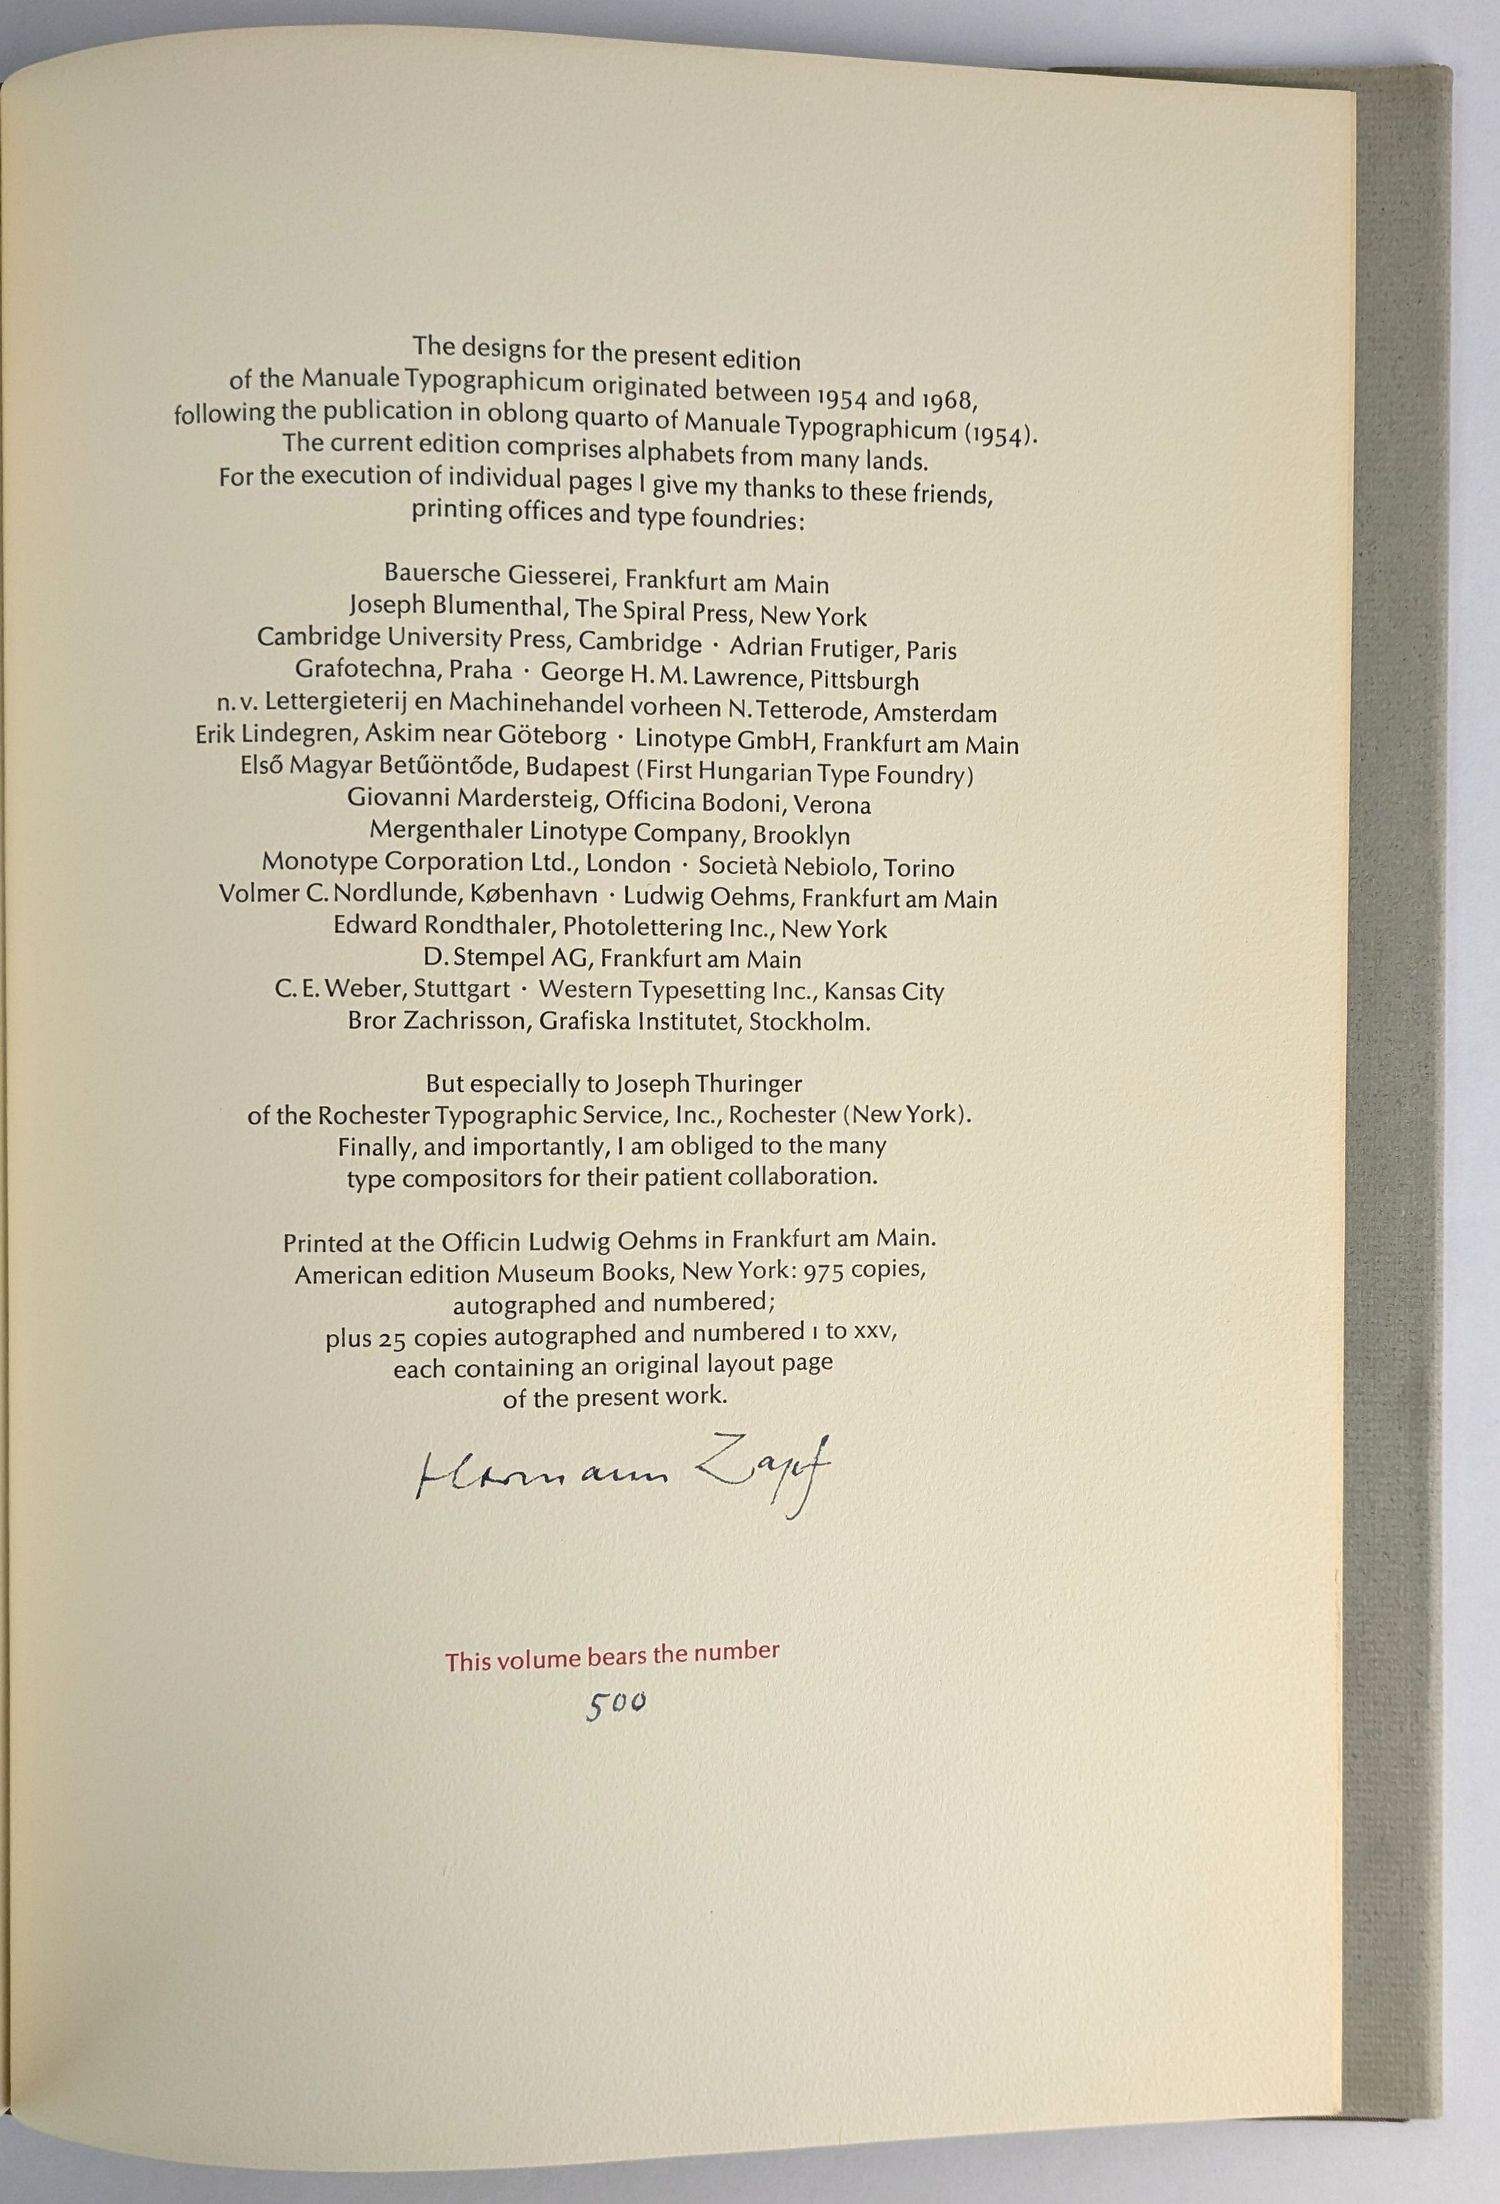 The designs for the present edition
of the Manuale Typographicum originated between 1954 and 1968,
following the publication in oblong quarto of Manuale Typographicum (1954).
The current edition comprises alphabets from many lands.
For the execution of individual pages I give my thanks to these friends,
printing offices and type foundries:
Bauersche Giesserei, Frankfurt am Main
Joseph Blumenthal, The Spiral Press, New York
Cambridge University Press, Cambridge · Adrian Frutiger, Paris
Grafotechna, Praha · George H. M. Lawrence, Pittsburgh
n. v. Lettergieterij en Machinehandel vorheen N. Tetterode, Amsterdam
Erik Lindegren, Askim near Göteborg · Linotype GmbH, Frankfurt am Main
Első Magyar Betűöntőde, Budapest (First Hungarian Type Foundry)
Giovanni Mardersteig, Officina Bodoni, Verona
Mergenthaler Linotype Company, Brooklyn
Monotype Corporation Ltd., London · Società Nebiolo, Torino
Volmer C. Nordlunde, København · Ludwig Oehms, Frankfurt am Main
Edward Rondthaler, Photolettering Inc., New York
D. Stempel AG, Frankfurt am Main
C. E. Weber, Stuttgart · Western Typesetting Inc., Kansas City
Bror Zachrisson, Grafiska Institutet, Stockholm.
But especially to Joseph Thuringer
of the Rochester Typographic Service, Inc., Rochester (New York).
Finally, and importantly, I am obliged to the many
type compositors for their patient collaboration.
Printed at the Officin Ludwig Oehms in Frankfurt am Main.
American edition Museum Books, New York: 975 copies,
autographed and numbered;
plus 25 copies autographed and numbered I to XXV,
each containing an original layout page
of the present work.
Hermann Zapf
This volume bears the number
500